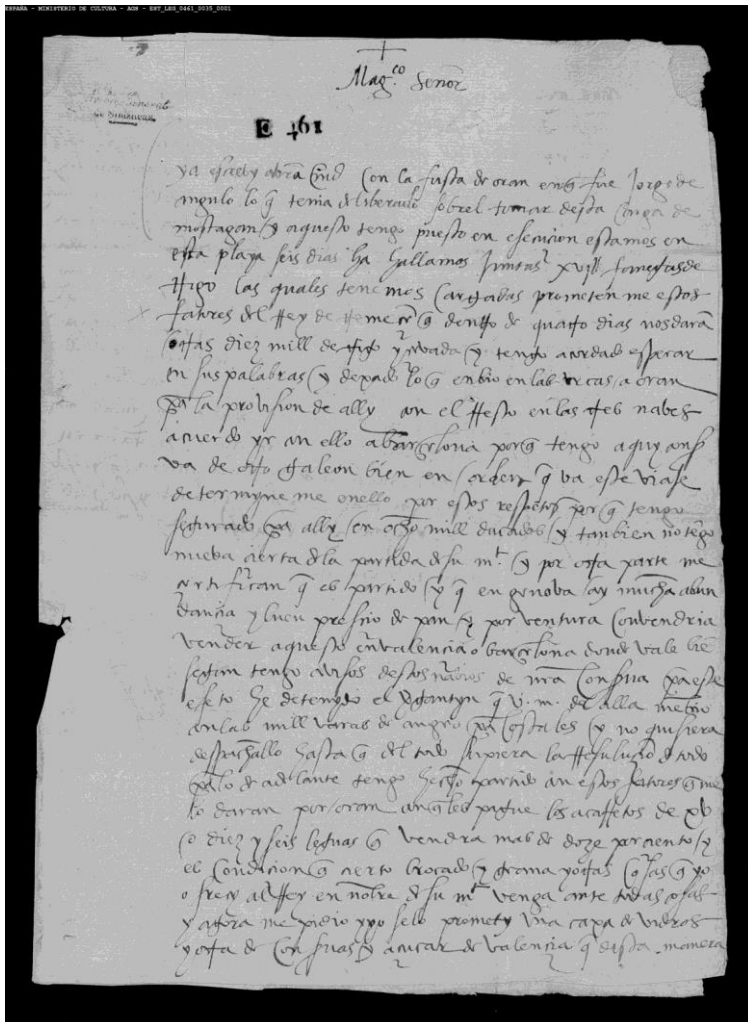 ESPAÑA - MINISTERIO DE CULTURA - AGS - EST_LEG_0461_0035_0001
Mag.co Señor
Archivo General
de Simancas
E 461
ya escrevy a v.m. con la fusta de oran en q fue Jorge de
angulo lo q tenia deliberado sobrel tomar desta carga de
mostagan y aquesto tengo puesto en esecucion estamos en
esta playa seis dias ha hallamos juntas xviiU fanegas de
trigo las quales tenemos cargadas prometen me estos
fatores del Rey de tremecen q dentro de quatro dias nos daran
otras diez mill de trigo y cevada y tengo acordado esperar
en sus palabras y dexado lo q enbio en las urcas a oran
pa la provision de ally con el Resto en las tres naves
acuerdo yr con ello a barcelona porq tengo aquy conserva
va de otro galeon bien en orden q va este viaje
determyne me en ello por estos respetos por q tengo
segurado pa ally en ocho mill ducados y tanbien no tengo
nueba cierta de la partida de su mt y por otra parte me
certifican q es partido y q en genova ay mucha abun
dancia y buen prescio de pan y por ventura convendria
vender aquesto en valencia o barcelona donde vale bie
segun tengo avisos destos navios de nra conserva pa este
efeto he detenydo el vergantyn q v.m. de alla me enbio
con las mill varas de angeo pa costales y no quisiera
despachallo hasta q del todo supiera la Resulucio de todo
pa lo de adelante tengo hecho partido con estos fatores q me
lo daran por oran con q les pague los acarretos de xv
o diez y seis leguas q vendra mas de doze por ciento y
es condicion q cierto brocado y grana y otras cosas q yo
ofrecy al Rey en nonbre de su mt venga ante todas cosas
y agora me pidio y yo se lo promety una caxa de vidros
y otra de conservas y açucar de valencia q desta manera